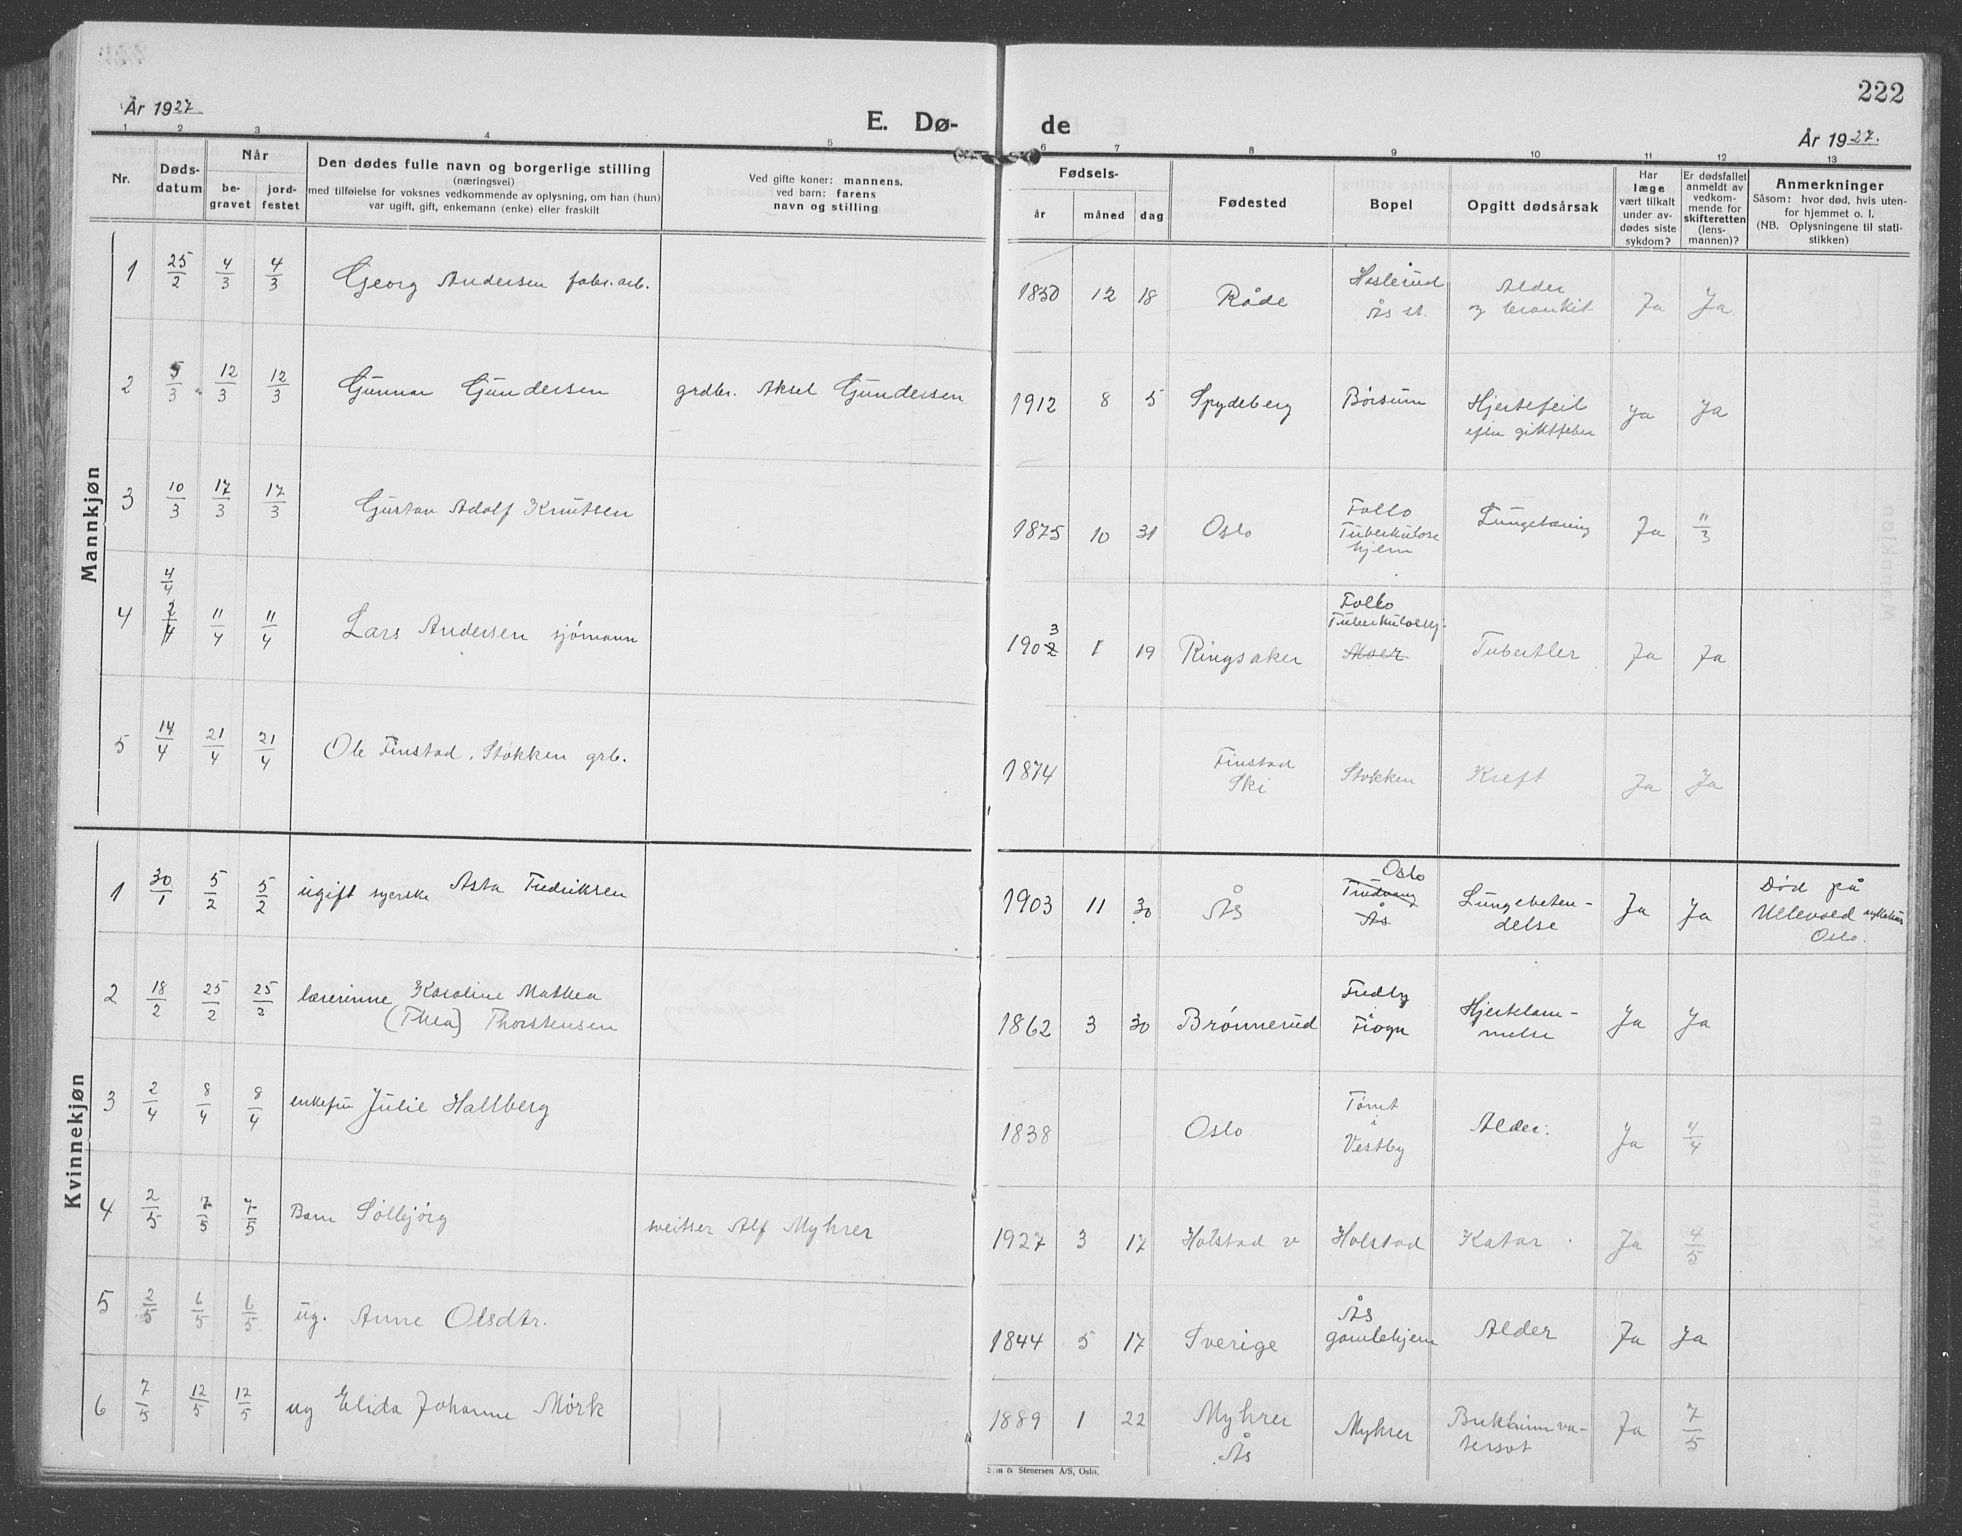 222
År 1927
E. Dø-
de
År 1927.
1 2 3 4 5 6 7 8 9 10 11 12 13
Nr.
Døds-
datum
Når
be-
gravet
jord-
festet
Den dødes fulle navn og borgerlige stilling
(næringsvei)
med tilføielse for voksnes vedkommende av oplysning, om han (hun)
var ugift, gift, enkemann (enke) eller fraskilt
Ved gifte koner: mannens,
ved barn: farens
navn og stilling
Fødsels-
år måned dag
Fødested
Bopel
Opgitt dødsårsak
Har
læge
vært tilkalt
under av-
dødes siste
sykdom?
Er dødsfallet
anmeldt av
vedkom-
mende for
skifteretten
(lens-
mannen)?
Anmerkninger
Såsom: hvor død, hvis uten-
for hjemmet o. l.
(NB. Oplysningene til stati-
stikken)
Mannkjøn
1 25/2 4/3 4/3 Georg Andersen fabr. arb. 1850 12 18 Råde Haslerud
Ås st. Alder
og bronkit Ja Ja
2 5/3 12/3 12/3 Gunnar Gundersen grdbr. Aksel Gundersen 1912 8 5 Spydeberg Børsum Hjertefeil
efter giktfeber Ja Ja
3 10/3 17/3 17/3 Gustav Adolf Knutsen 1875 10 31 Oslo Follo
Tuberkulose
hjem Lungetæring Ja 11/3
4/4
4 2/4 11/4 11/4 Lars Andersen sjømann 1902 3 1 19 Ringsaker Follo
Tuberkulosehj.
Moer Tuberkler Ja Ja
5 14/4 21/4 21/4 Ole Finstad, Stokken grb. 1874 Finstad
Ski Stokken Kreft Ja Ja
Kvinnekjøn
1 30/1 5/2 5/2 ugift syerske Asta Fredriksen 1903 11 30 Ås Oslo
Trudvang
Ås Lungebeten-
delse Ja Ja Død på
Ullevold sykehus
Oslo.
2 18/2 25/2 25/2 lærerinne Karoline Mathea
(Thea) Thorstensen 1862 3 30 Brønnerud Fredly
i
Frogn Hjertelam-
melse Ja Ja
3 2/4 8/4 8/4 enkefru Julie Hallberg 1838 Oslo Tomt
i
Vestby Alder. Ja 4/4
4 2/5 7/5 7/5 Barn Sollbjörg sveitser Alf Myhrer 1927 3 17 Holstad v Holstad Katar. Ja 4/5
5 2/5 6/5 6/5 ug. Anne Olsdtr. 1844 5 17 Sverige Ås
gamlehjem Alder Ja Ja
6 7/5 12/5 12/5 ug Elida Johanne Mørk 1889 1 22 Myhrer
Ås Myhrer Bukhinnva-
tersot Ja 7/5
& Stenersen A/S, Oslo.